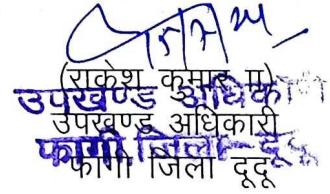 (राकेश कुमार II)
उपखण्ड अधिकारी
उपखण्ड अधिकारी
फागी जिला-दूदू
फागी जिला दूदू